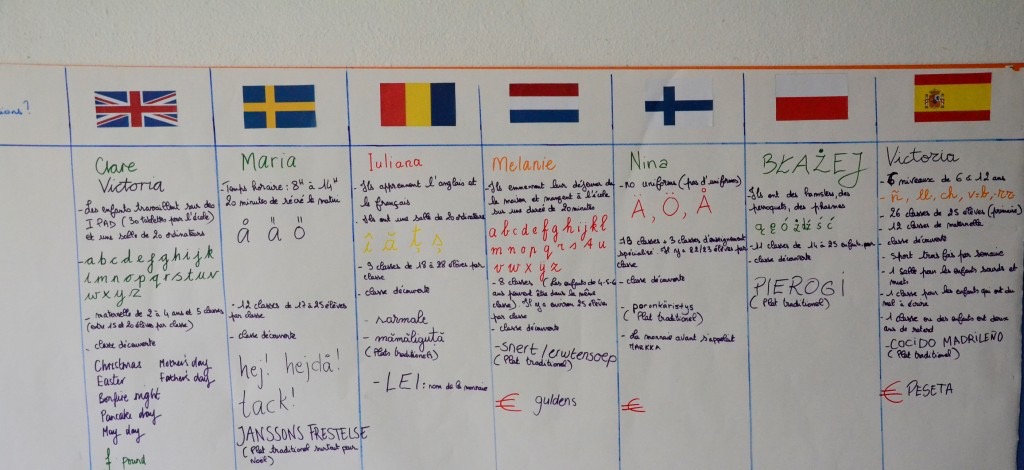 Clare
Victoria
- Les enfants travaillent sur des
IPAD (30 tablettes pour l'école)
et une salle de 20 ordinateurs
- a b c d e f g h i j k
l m n o p q r s t u v
w x y z
- maternelle de 2 à 4 ans et 5 classes
(entre 15 et 20 élèves par classe)
- classe découverte
Christmas Mother's day
Easter Father's day
Bonfire night
Pancake day
May day
£ pound
Maria
- Temps horaire : 8H à 14H
20 minutes de récré le matin
å ä ö
- 12 classes de 17 à 25 élèves
par classe
- classe découverte
hej! hejdå!
tack!
JANSSONS FRESTELSE
(Plat traditionnel surtout pour
Noël)
Iuliana
- Ils apprennent l'anglais et
le français
- Ils ont une salle de 20 ordinateurs
â ă ț ș
- 3 classes de 18 à 28 élèves par
classe
- classe découverte
- sarmale
- mămăliguță
(Plats traditionnels)
- LEI : nom de la monnaie
Melanie
- Ils emmènent leur déjeuner de
la maison et mangent à l'école
sur une durée de 20 minutes
a b c d e f g h i j k l
m n o p q r s t u
v w x y z
- 8 classes (Les enfants de 4-5-6
ans peuvent être dans la même
classe) Il y a environ 25 élèves
par classe
- classe découverte
- snert / erwtensoep
(Plat traditionnel)
€ guldens
Nina
- no uniforms (pas d'uniformes)
Ä, Ö, Å
- 18 classes + 3 classes d'enseignement
spécialisé. Il y a 22/23 élèves par
classe
- classe découverte
- poronkäristys
(Plat traditionnel)
- La monnaie avant s'appelait
MARKKA
€
BŁAŻEJ
Ils ont des hamsters, des
perroquets, des phasmes
ą ę ó ż ź ś ć
- 11 classes de 14 à 25 enfants par
classe
- classe découverte
PIEROGI
(Plat traditionnel)
Victoria
- 6 niveaux de 6 à 12 ans
- ñ, ll, ch, v=b, -rr
- 26 classes de 25 élèves (primaire)
- 12 classes de maternelle
- classe découverte
- sport trois fois par semaine
- 1 salle pour les enfants sourds et
muets
- 1 classe pour les enfants qui ont du
mal à écrire
- 1 classe où des enfants ont deux
ans de retard
- COCIDO MADRILEÑO
(Plat traditionnel)
€ PESETA